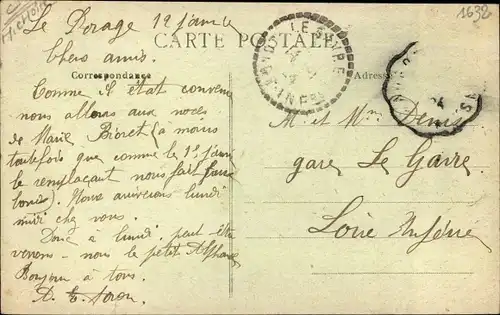 1632
Le Dorage 12 Janvier
CARTE POSTALE
Chers amis.
Correspondance
Adresse
Comme il était convenu
nous allons aux noces
de Marie Bioret (a moins
toutefois que comme le 1er Janv
le remplaçant nous fait faux
bond). Nous arrivions lundi
midi chez vous.
Donc à lundi peut être
venons-nous le petit Alphonse
Bonjour à tous.
M. et Mme Denis
gare Le Gavre
Loire Infére